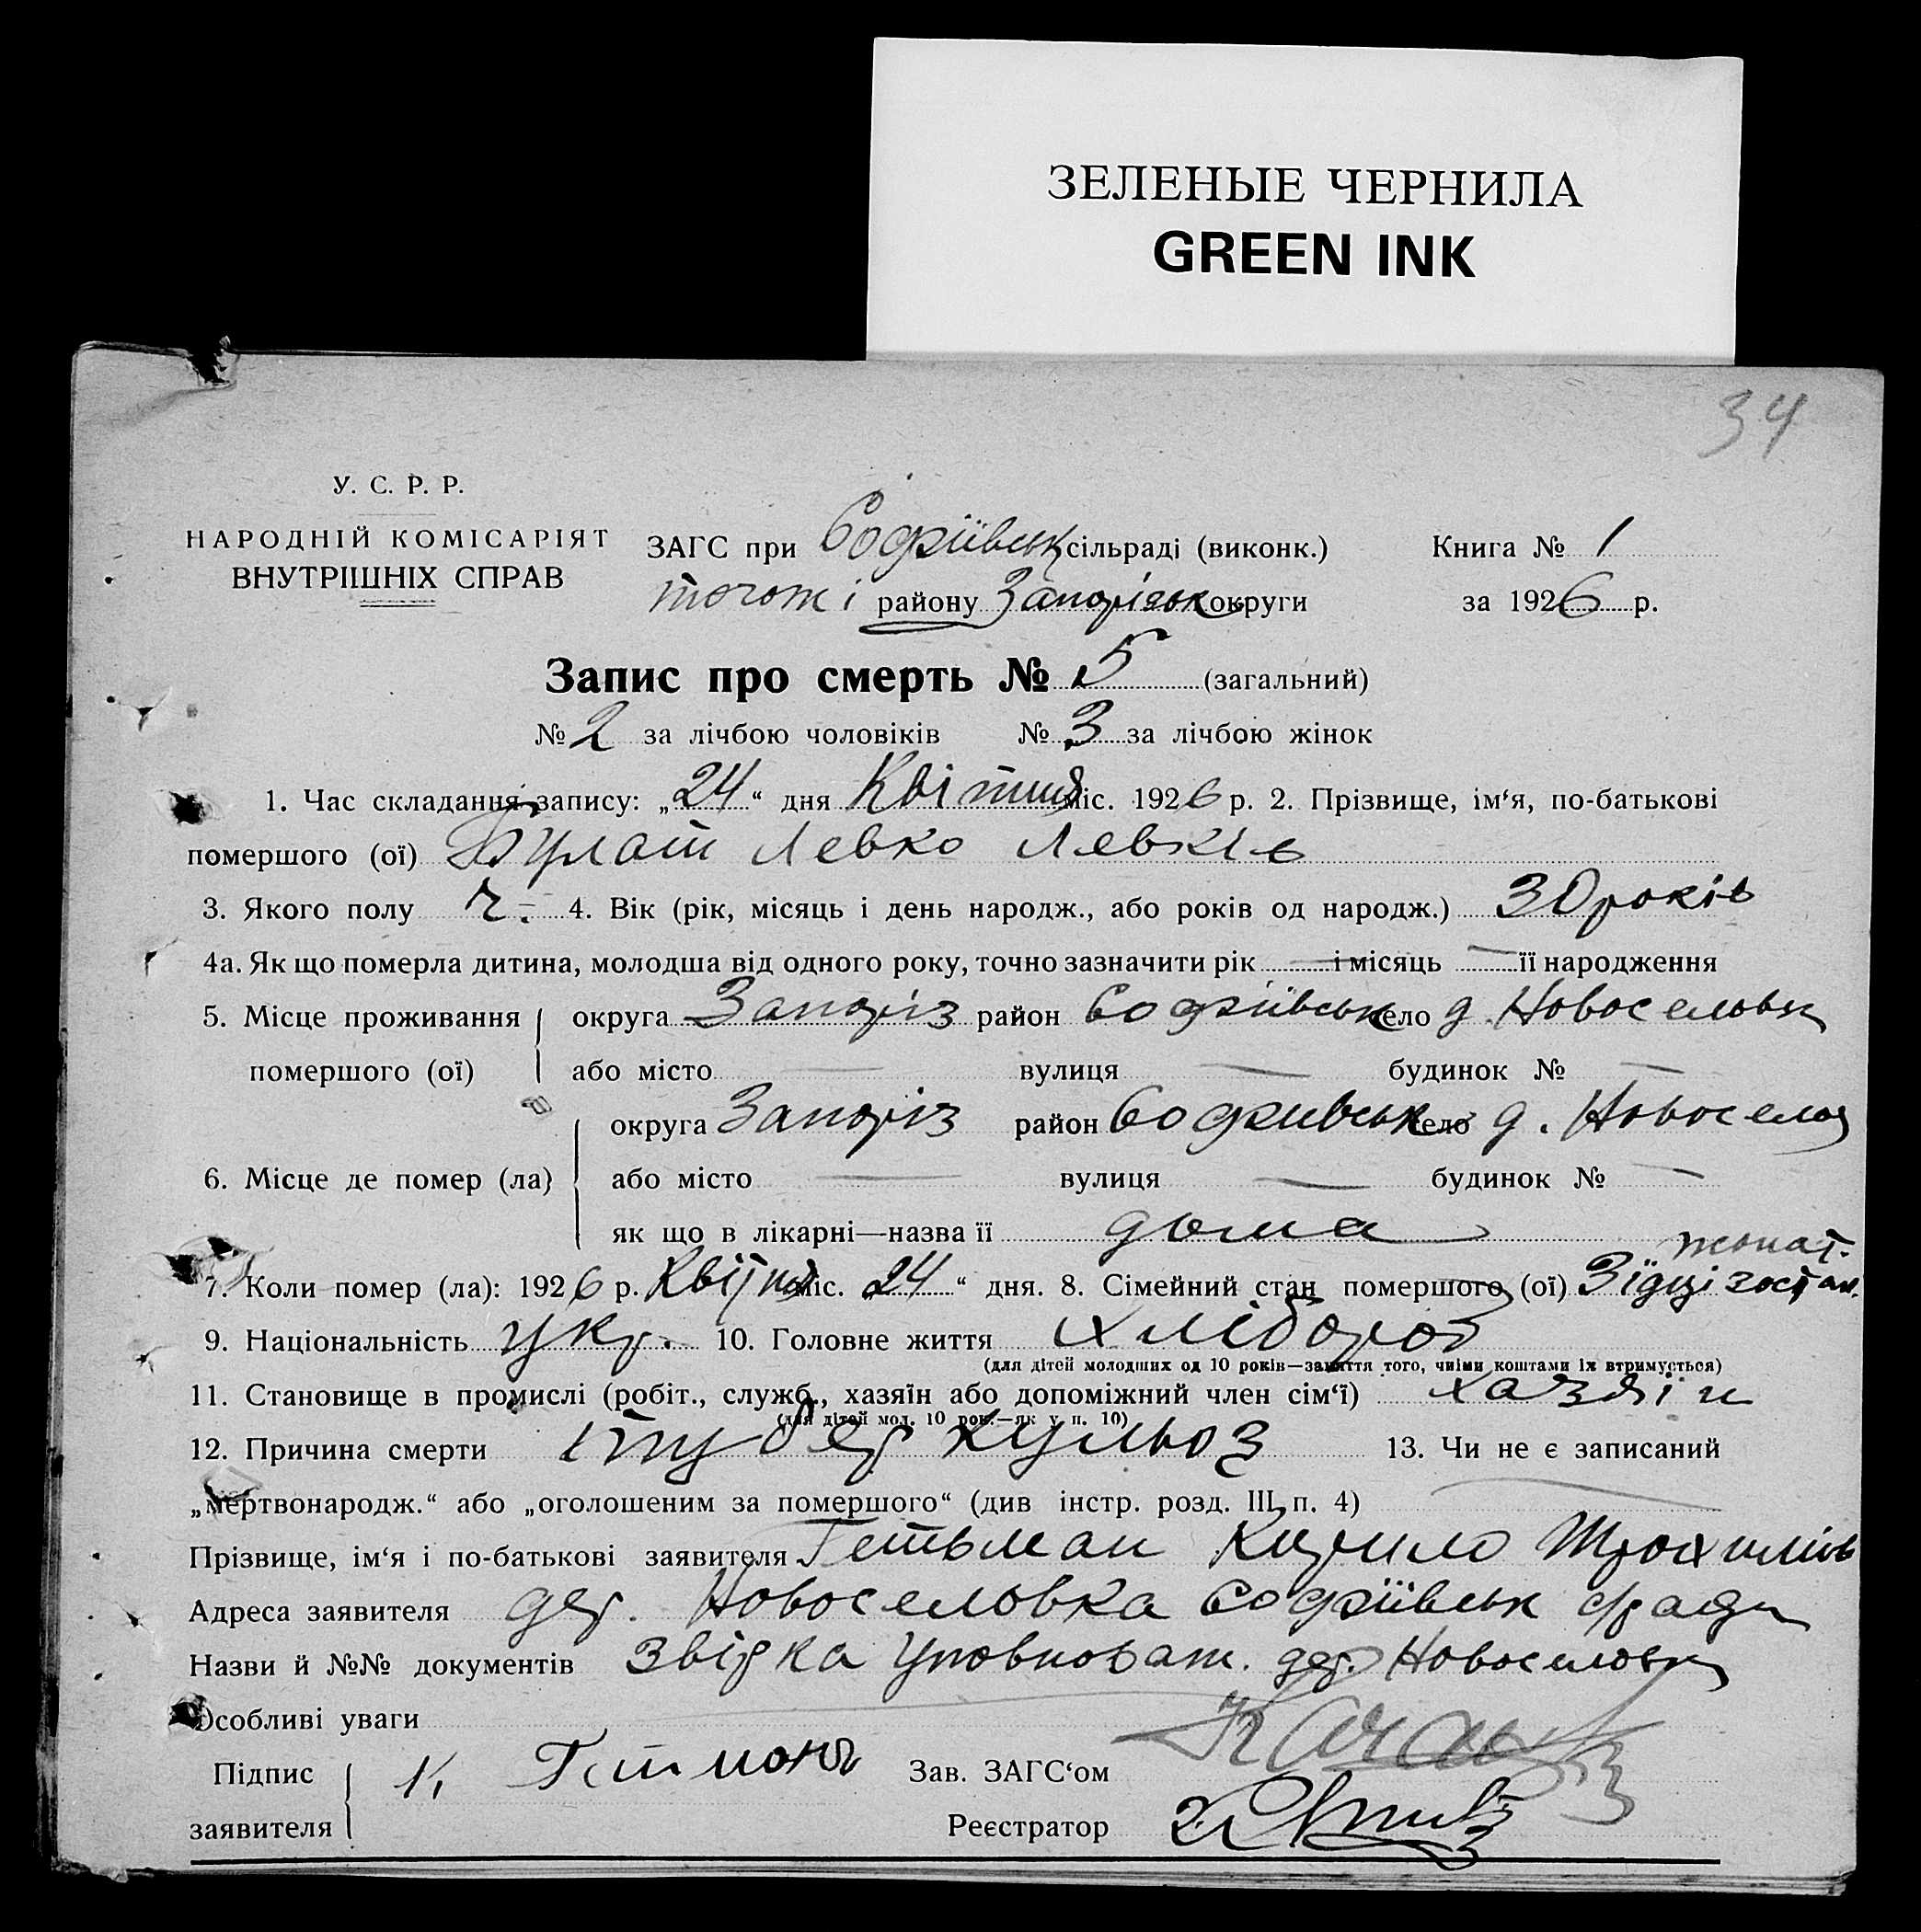 ЗЕЛЕНЫЕ ЧЕРНИЛА
GREEN INK
34
У. С. Р. Р.
НАРОДНІЙ КОМІСАРІЯТ
ВНУТРІШНІХ СПРАВ
ЗАГС при Софіївськ сільраді (виконк.)
тогож і району Запорізьк округи
Книга № 1
за 1926 р.
Запис про смерть № 5 (загальний)
№ 2 за лічбою чоловіків № 3 за лічбою жінок
1. Час складання запису: „24“ дня Квітня міс. 1926 р. 2. Прізвище, ім‘я, по-батькові
помершого (ої) Булат Левко Левків
3. Якого полу ч. 4. Вік (рік, місяць і день народж., або років од народж.) 30 років
4а. Як що померла дитина, молодша від одного року, точно зазначити рік — і місяць — її народження
5. Місце проживання округа Запоріз район Софіївськ село д. Новоселовк
помершого (ої) або місто — вулиця — будинок № —
округа Запоріз район Софиївськ село д. Новоселов
6. Місце де помер (ла) або місто — вулиця — будинок № —
як що в лікарні—назва її дома
жонат.
7. Коли помер (ла): 1926 р. Квітня міс. 24 “ дня. 8. Сімейний стан помершого (ої)
9. Національність укр. 10. Головне життя хлібороб
(для дітей молодших од 10 років—заняття того, чиїми коштами їх втримується)
11. Становище в промислі (робіт., служб., хазяїн або допоміжний член сім‘ї) хазяїн
(для дітей мол. 10 рок.—як у п. 10)
12. Причина смерти туберкульоз 13. Чи не є записаний
„мертвонародж.“ або „оголошеним за помершого“ (див інстр. розд. III п. 4)
Прізвище, ім‘я і по-батькові заявителя Гетьман Кирило Трохимів
Адреса заявителя дер. Новоселовка Софіївськ с/ради
Назви й №№ документів Звідка Уповноват. дер. Новоселовк
Особливі уваги
Підпис К. Гетмонъ Зав. ЗАГС‘ом
заявителя Реєстратор